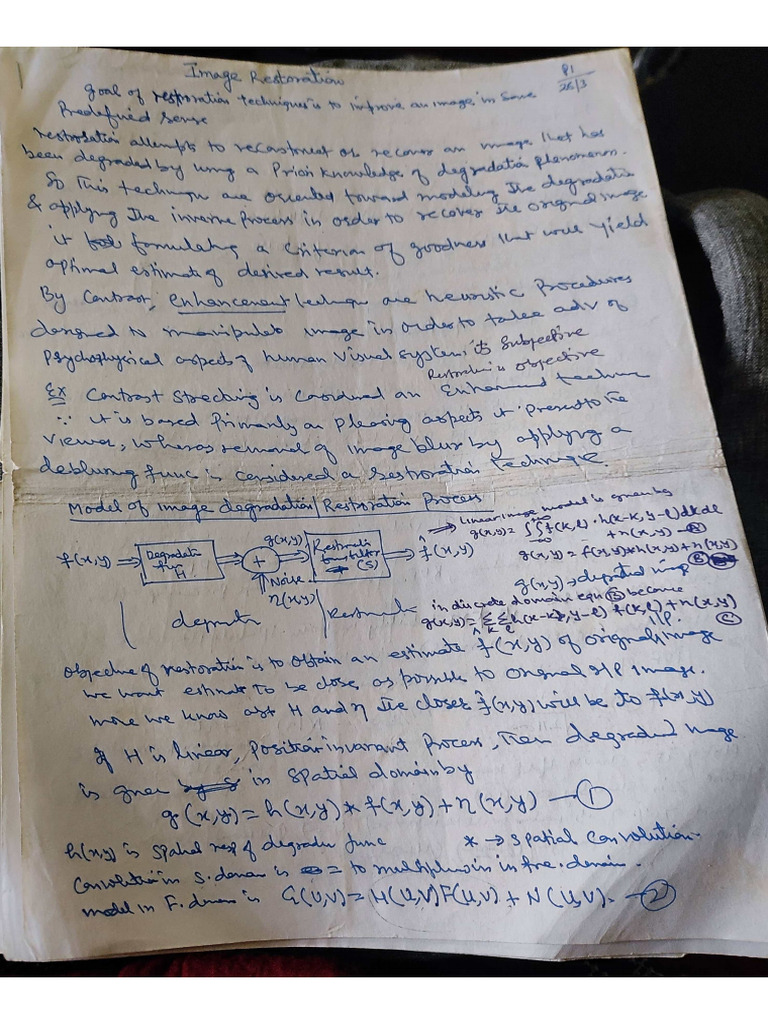 Image Restoration
P1
26/3
Goal of restoration techniques is to improve an image in some
Predefined sense
restoration attempts to reconstruct or recover an image that has
been degraded by using a Prior knowledge of degradation phenomenon.
So This technique are oriented toward modeling the degradation
& applying the inverse Process in order to recover the original image
it formulating a criterion of goodness that will yield
optimal estimate of desired result.
By Contrast, enhancement technique are heuristic Procedures
designed to manipulate image in order to take adv of
Psychophysical aspects of human visual system, its subjective
Restoration is objective
Ex Contrast streching is considered an Enhancement technique
∵ it is based Primarily on pleasing aspects it Present to the
viewer, whereas removal of image blur by applying a
deblurring func is considered a restoration technique.
Model of image degradation/Restoration Process
f(x,y) ⇒ Degradation func H ⇒ + g(x,y) ⇒ Restoration filter (s) ⇒ f̂(x,y)
Noise
η(x,y)
Restoration
⇒ linear image model is given by
g(x,y) = ∫∫ f(k,l)·h(x-k, y-l)dkdl
+ η(x,y) — A
g(x,y) = f(x,y)*h(x,y)+η(x,y)
B
g(x,y) → degraded image
in discrete domain eqn B became
g(x,y) = Σ Σ h(x-k, y-l) f(k,l) + η(x,y)
C
Objective of restoration is to obtain an estimate f̂(x,y) of original I/P image
we want estimate to be close as possible to original I/P image.
more we know abt H and η the closer f̂(x,y) will be to f(x,y)
If H is linear, position invariant process, then degraded image
is given in spatial domain by
g(x,y) = h(x,y) * f(x,y) + η(x,y) — 1
h(x,y) is spatial resp of degrada func * → spatial Convolution.
Convolution in S. domain is = to multiplication in fre. domain.
model in F. domain is G(u,v) = H(u,v)F(u,v) + N(u,v). — 2